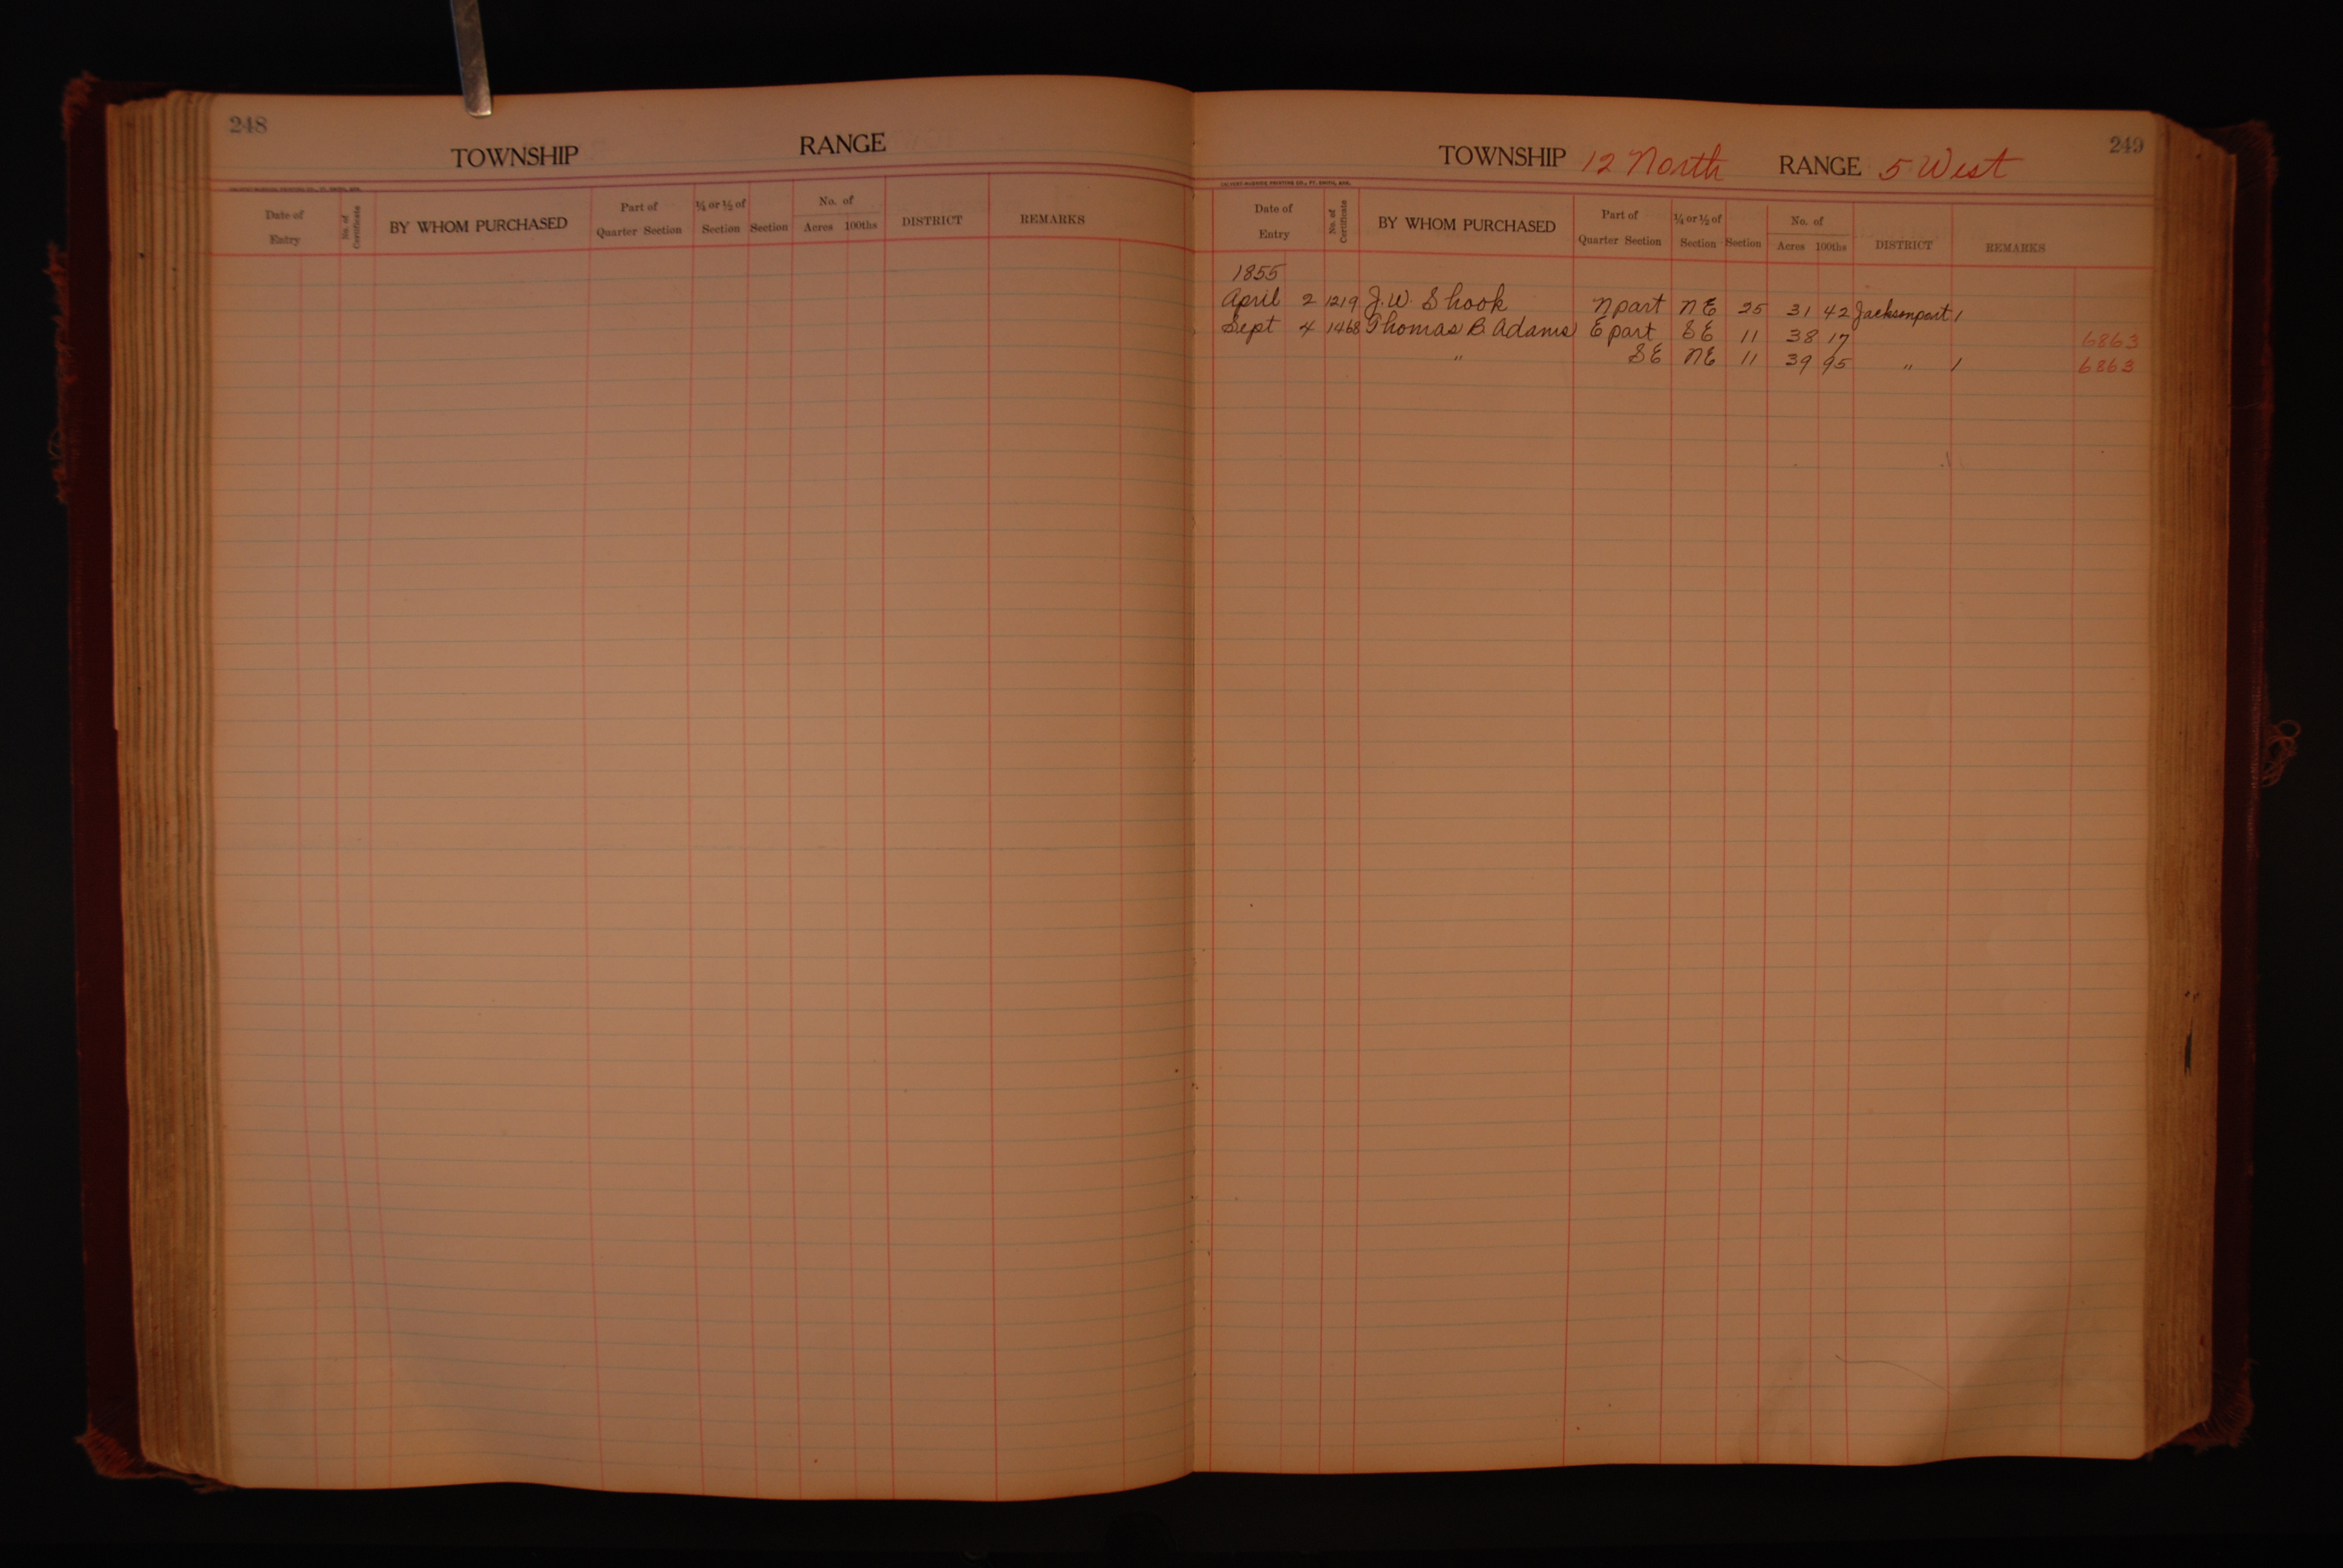 248
TOWNSHIP RANGE
Date of Entry No. of Certificate BY WHOM PURCHASED Part of Quarter Section ¼ or ½ of Section Section No. of Acres 100ths DISTRICT REMARKS
249
TOWNSHIP 12 North RANGE 5 West
CALVERT-McBRIDE PRINTING CO., FT. SMITH, ARK.
Date of Entry No. of Certificate BY WHOM PURCHASED Part of Quarter Section ¼ or ½ of Section Section No. of Acres 100ths DISTRICT REMARKS
1855
April 2 1219 J. W. Shook N part NE 25 31 42 Jacksonport /
Sept 4 1468 Thomas B Adams E part SE 11 38 17 6863
" SE NE 11 39 95 " / 6863